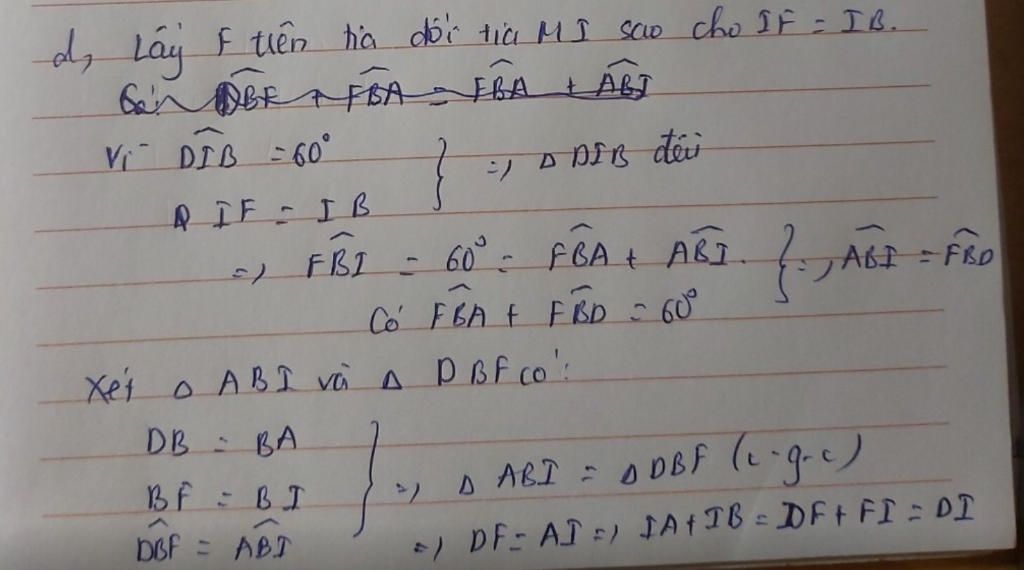 d, Lấy F trên tia đối tia MI sao cho IF = IB.
Vì DÎB = 60°
IF = IB } => Δ DIB đều
=> FB̂I = 60° = FB̂A + AB̂I.
Có FB̂A + FB̂D = 60° } => AB̂I = FB̂D
Xét Δ ABI và Δ DBF có:
DB = BA
BF = BI
DB̂F = AB̂I } => Δ ABI = Δ DBF (c-g-c)
=> DF = AI => IA + IB = DF + FI = DI